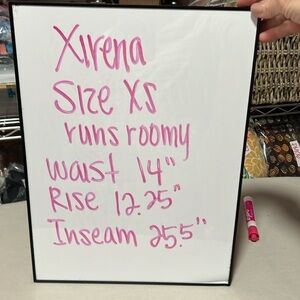 Xirena
Size XS
runs roomy
Waist 14"
Rise 12.25"
Inseam 25.5"